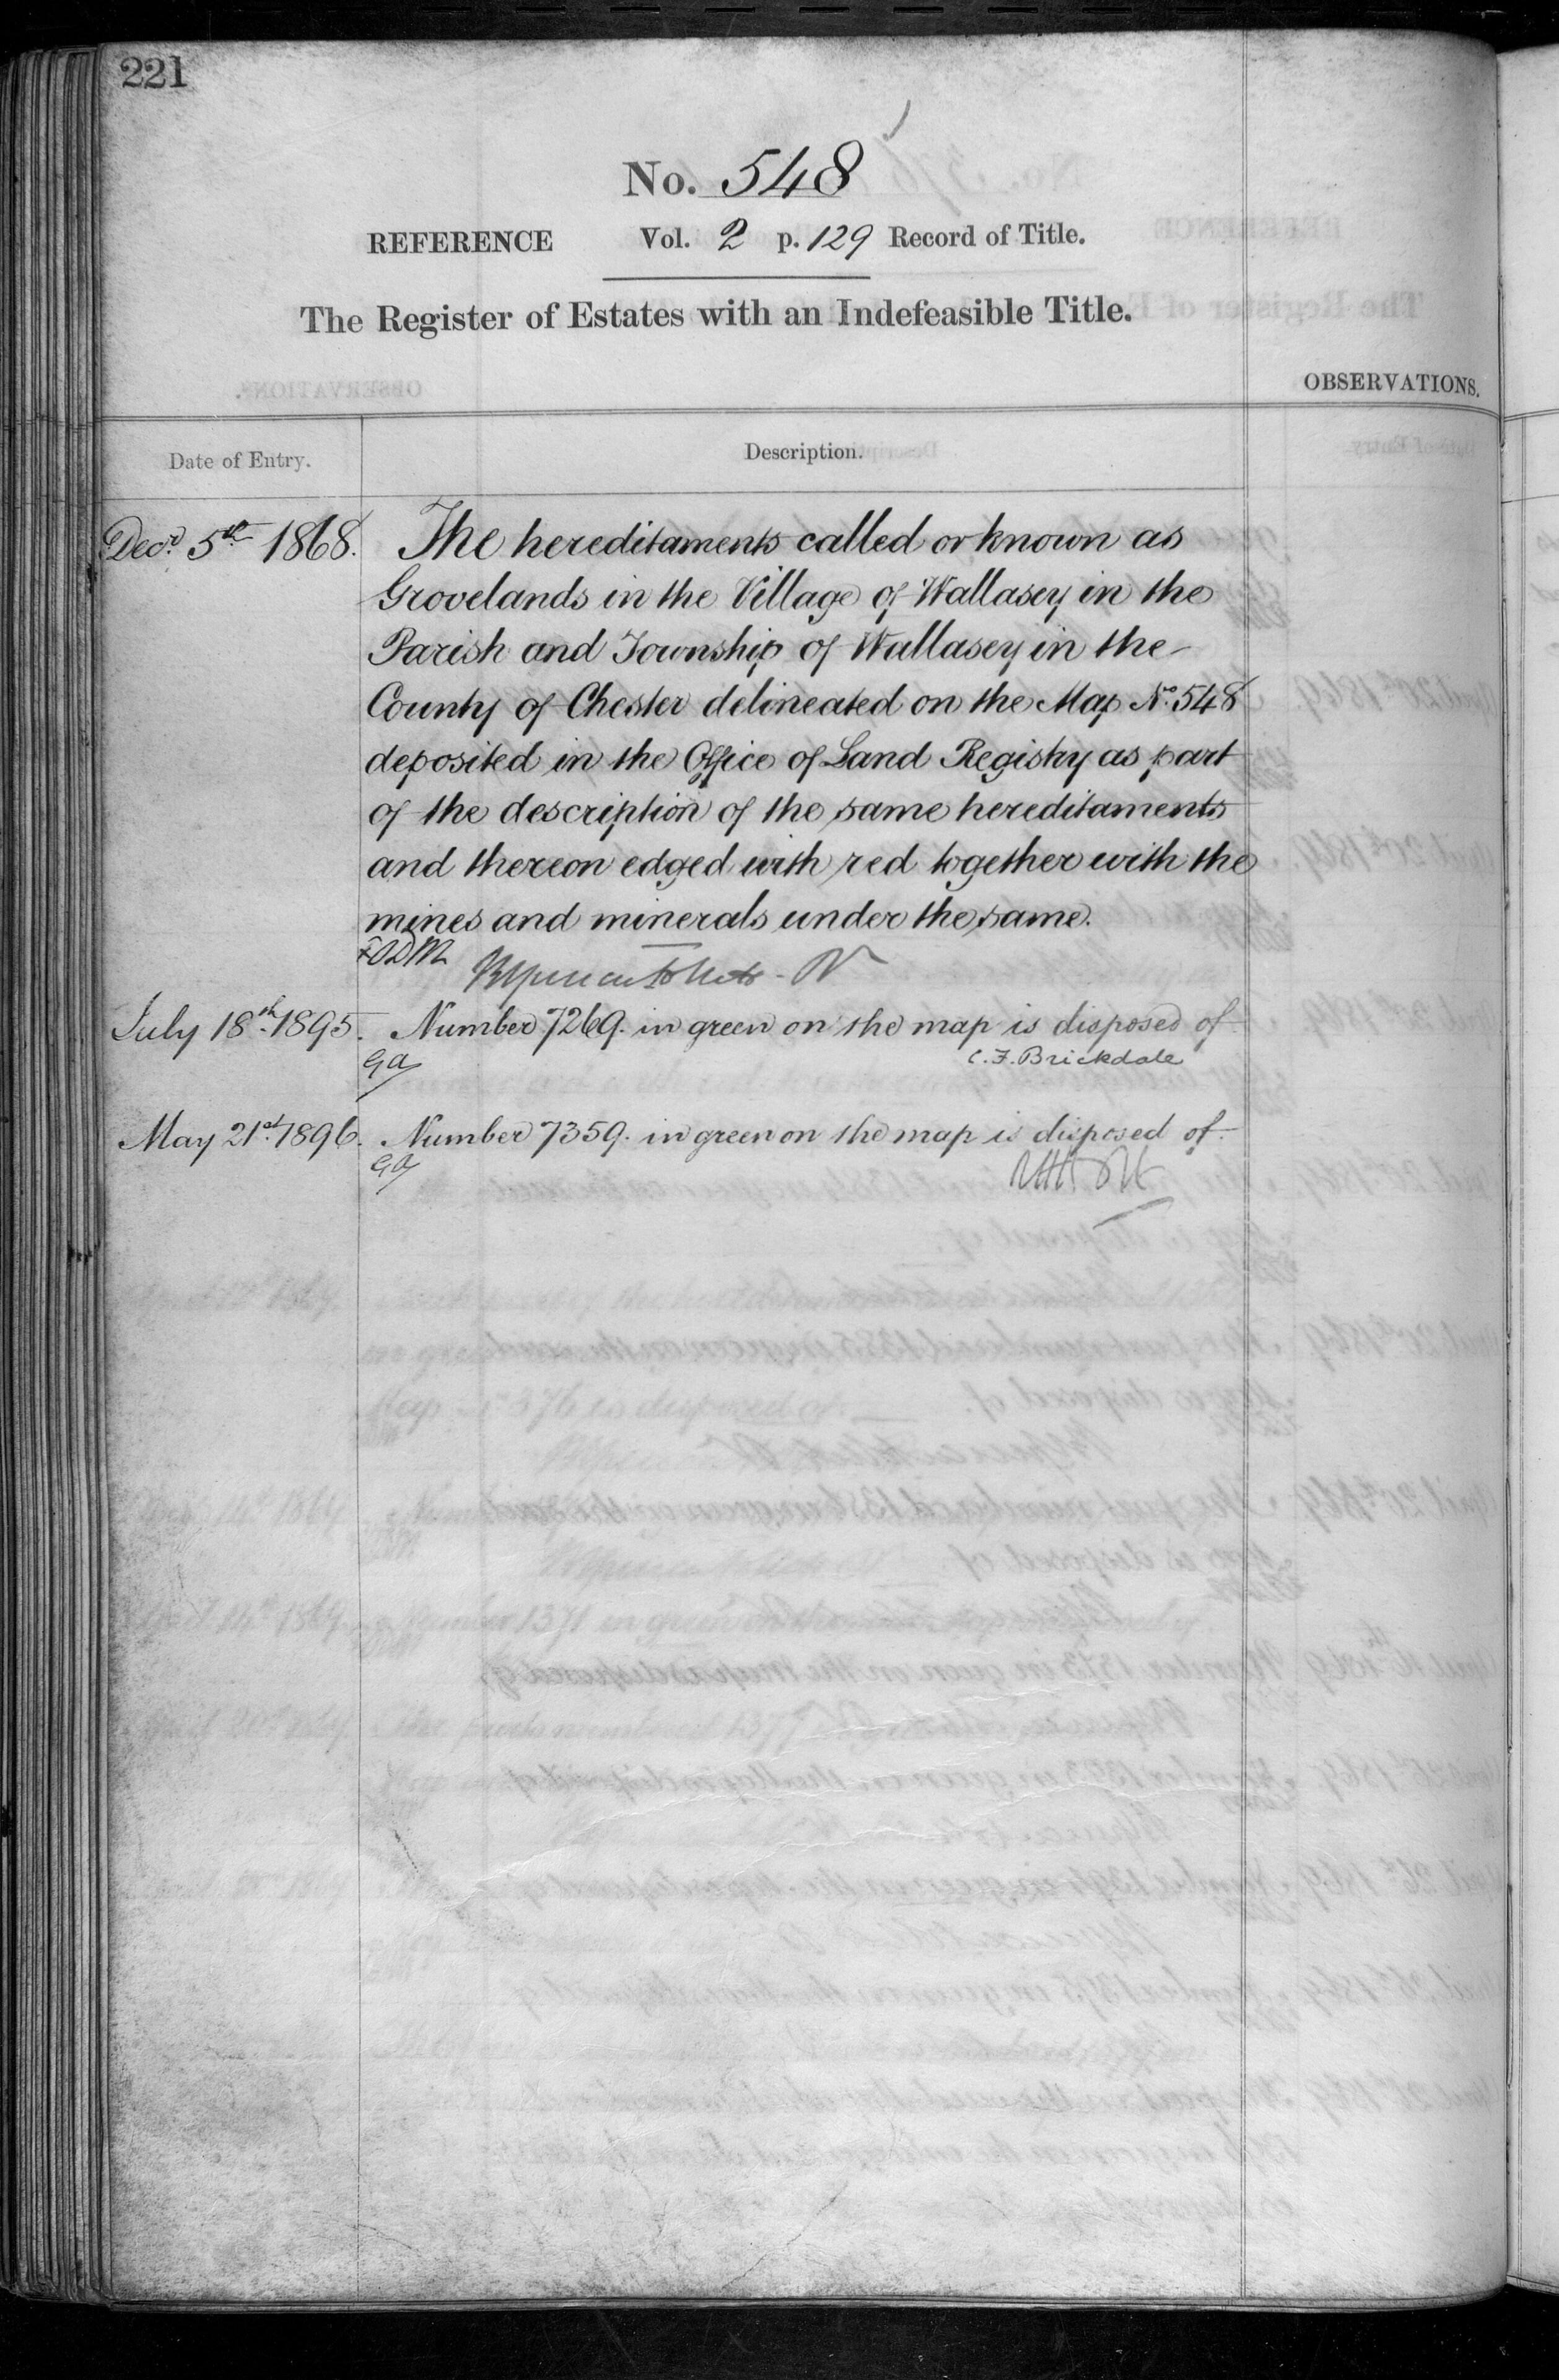 221
No. 548
REFERENCE Vol. 2 p. 129 Record of Title.
The Register of Estates with an Indefeasible Title.
OBSERVATIONS.
Date of Entry. Description.
Decr. 5th 1868. The hereditaments called or known as
Grovelands in the Village of Wallasey in the
Parish and Township of Wallasey in the
County of Chester delineated on the Map No. 548
deposited in the Office of Land Registry as part
of the description of the same hereditaments
and thereon edged with red together with the
mines and minerals under the same.
July 18th 1895. Number 7269. in green on the map is disposed of.
GA C. F. Brickdale
May 21st 1896. Number 7359. in green on the map is disposed of.
GA